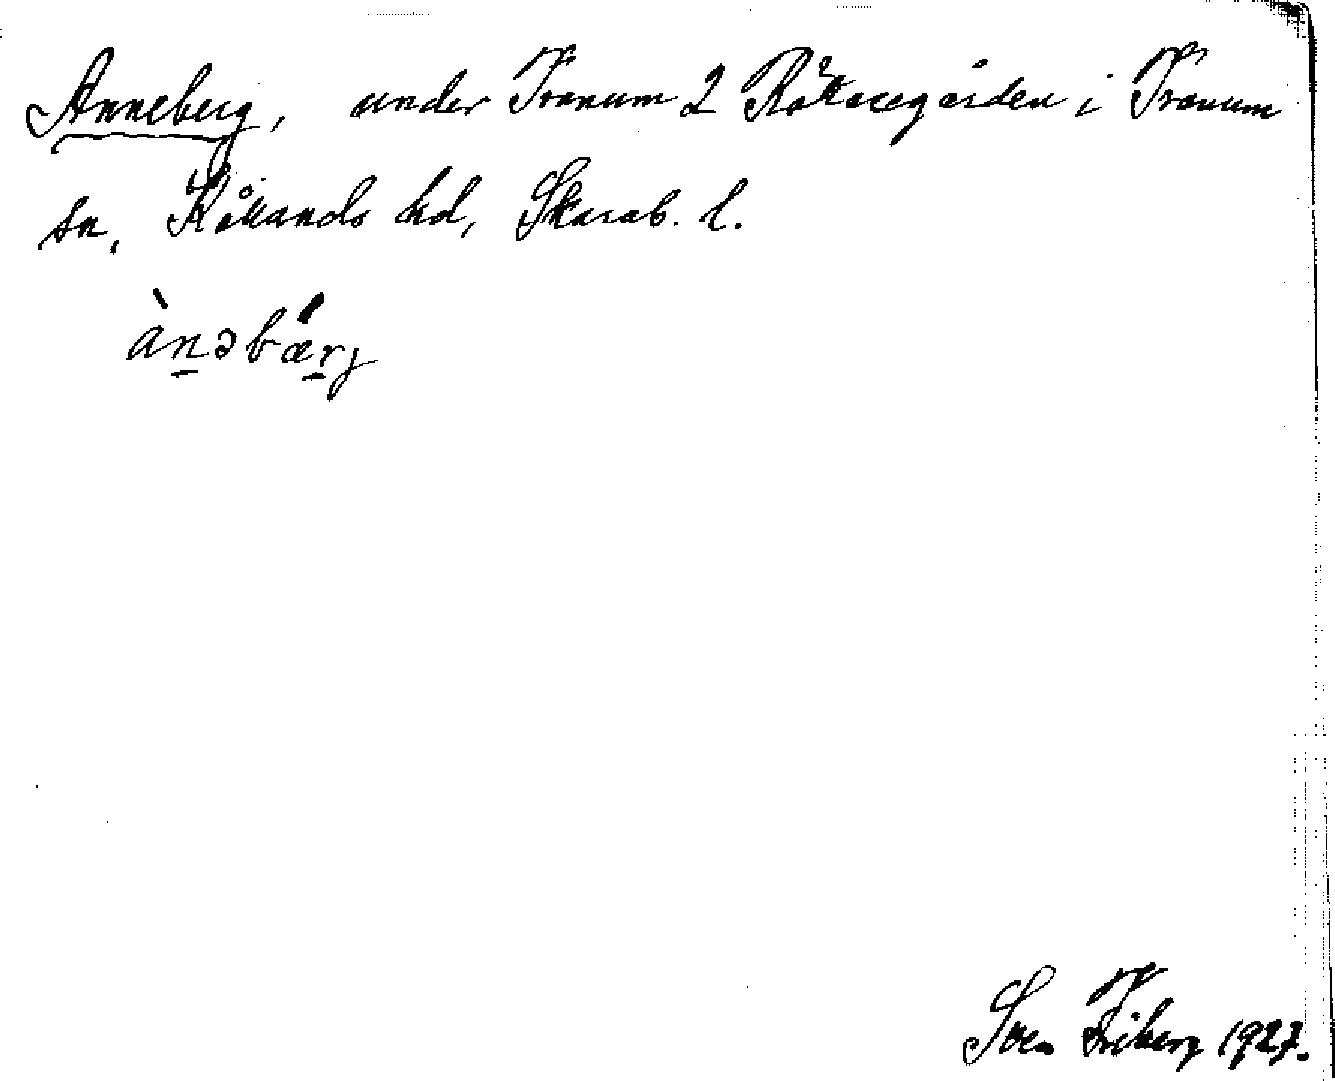 Anneberg, under Tranum 2 Råkasegården i Tranum
sn, Kållands hd, Skarab. l.
ànəbǽrj
Sven Friberg 1927.